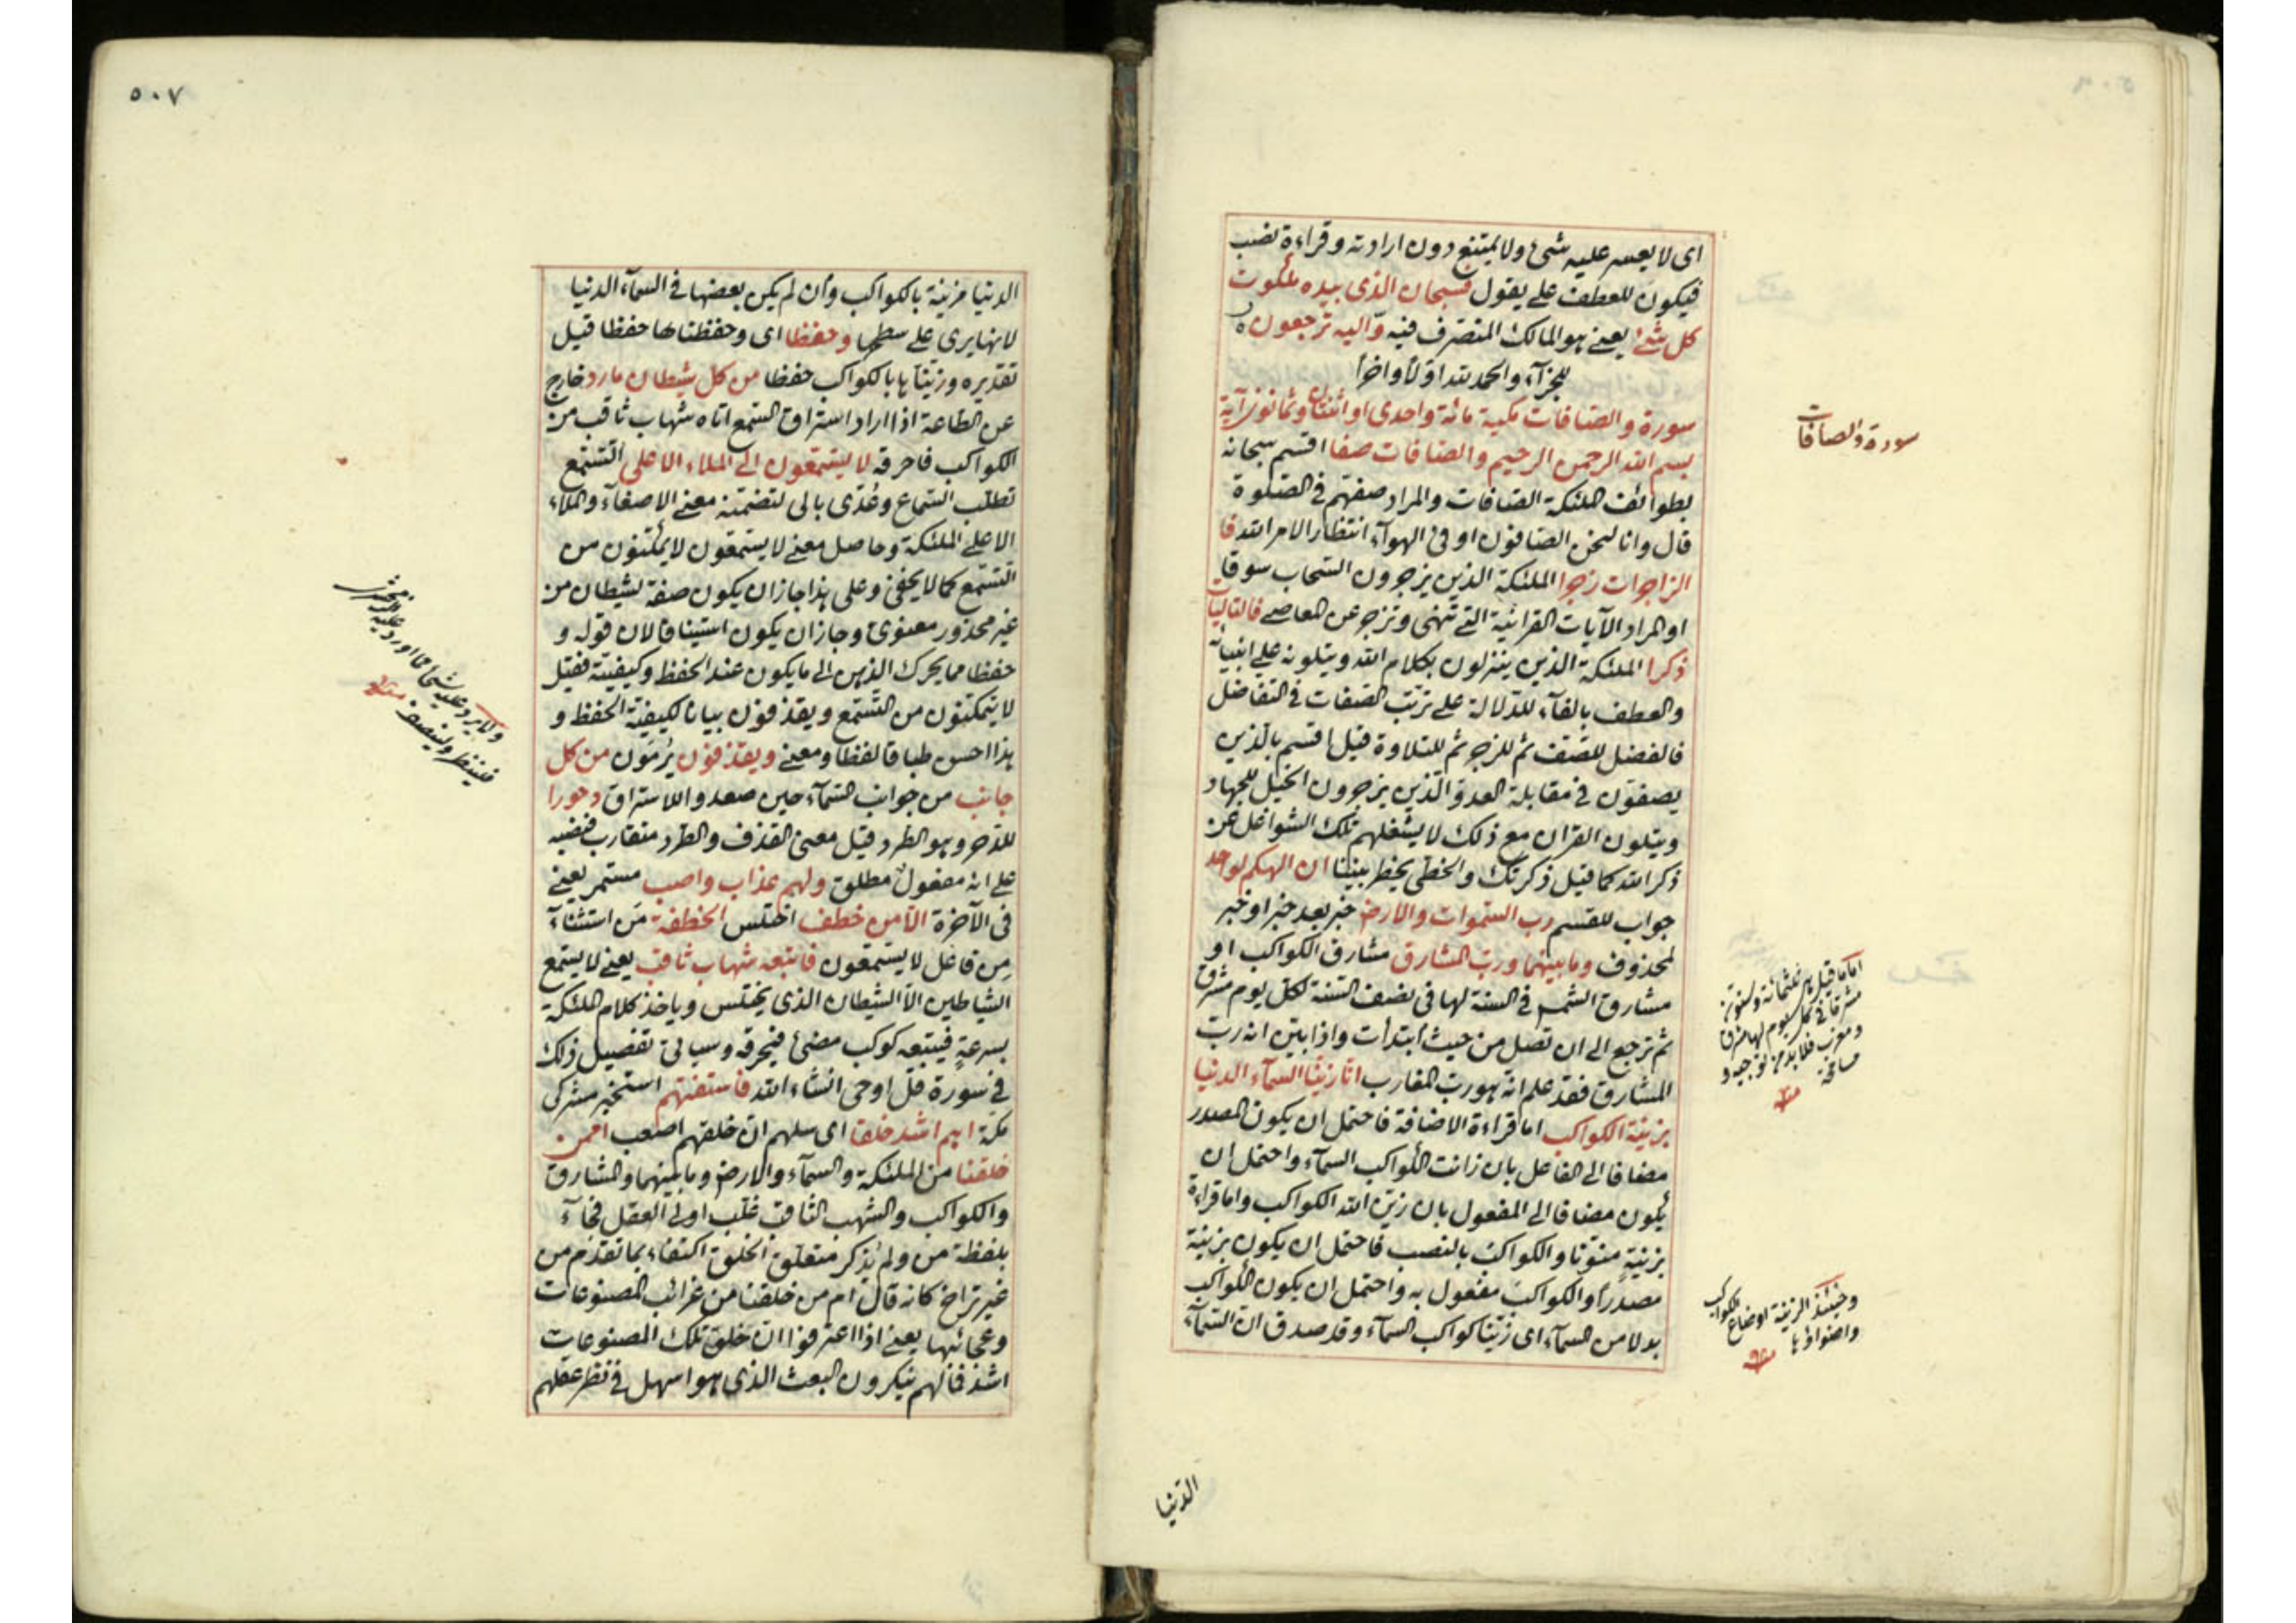 اى لا يعسر عليه شئ ولا يمتنع دون ارادته وقراءة نصب
فيكون للعطف على يقول فسبحان الذى بيده ملكوت
كل شئ يعنى هو المالك المتصرف فيه واليه ترجعون
للجزآء والحمد لله اولا واخرا
سورة والصافات مكية مائة واحدى او اثنتان وثمانون آية
بسم الله الرحمن الرحيم والصافات صفا اقسم سبحانه
بطوائف الملئكة الصافات والمراد صفهم فى الصلوة
قال وانا لنحن الصافون او فى الهوآء انتظارا لامر الله فا
الزاجرات زجرا الملئكة الذين يزجرون السحاب سوقا
او المراد الآيات القرانية التى تنهى وتزجر عن المعاصى فالتاليات
ذكرا الملئكة الذين ينزلون بكلام الله ويتلونه على انبيائه
والعطف بالفآء للدلالة على ترتب الصفات فى التفاضل
فالفضل للصف ثم للزجر ثم للتلاوة قيل اقسم بالذين
يصفون فى مقابلة العدو الذين يزجرون الخيل للجهاد
ويتلون القران مع ذلك لا يشغلهم تلك الشواغل عن
ذكر الله كما قيل ذكرتك والخطى يخطر بيننا ان الهكم لواحد
جواب للقسم رب السموات والارض خبر بعد خبر او خبر
لمحذوف وما بينهما ورب المشارق مشارق الكواكب او
مشارق الشمس فى السنة لها فى نصف السنة لكل يوم مشرق
ثم ترجع الى ان تصل من حيث ابتدأت واذا بين انه رب
المشارق فقد علم انه هو رب المغارب انا زينا السمآء الدنيا
بزينة الكواكب اما قراءة الاضافة فاحتمل ان يكون المصدر
مضافا الى الفاعل بان زانت الكواكب السمآء واحتمل ان
يكون مضافا الى المفعول بان زين الله الكواكب واما قراءة
بزينةٍ منونا والكواكب بالنصب فاحتمل ان يكون بزينة
مصدرا والكواكب مفعول به واحتمل ان يكون الكواكب
بدلا من السمآء اى زينا كواكب السمآء وقد صدق ان السمآء
سورة والصافات
اما ما قيل ثلثمائة وستون
مشرقا فى كل يوم لها مشرق
ومغرب فلا بد من توجيه و
مسامحة
منه
وحينئذ الزينة اوضاع الكواكب
واضواؤها
منه
الدنيا
٥٠٧
الدنيا مزينة بالكواكب وان لم يكن بعضها فى السمآء الدنيا
لانها يرى على سطحها وحفظا اى وحفظناها حفظا قيل
تقديره وزيناها بالكواكب حفظا من كل شيطان مارد خارج
عن الطاعة اذا اراد استراق السمع اتاه شهاب ثاقب من
الكواكب فاحرقه لا يسمعون الى الملاء الاعلى التسمع
تطلب السماع وعُدّى بالى لتضمنه معنى الاصغآء والملاء
الاعلى الملئكة وحاصل معنى لا يسمعون لا يمكنون من
التسمع كما لا يخفى وعلى هذا جاز ان يكون صفة لشيطان من
غير محذور معنوى وجاز ان يكون استينافا لان قوله و
حفظا مما يحرك الذهن الى ما يكون عند الحفظ وكيفيته فقيل
لا يتمكنون من التسمع ويقذفون بيانا لكيفية الحفظ و
هذا احسن طباقا لفظا ومعنى ويقذفون يُرمَون من كل
جانب من جوانب السمآء حين صعدوا للاستراق دحورا
للدحر وهو الطرد قيل معنى القذف والطرد متقارب فنصبه
على انه مفعول مطلق ولهم عذاب واصب مستمر يعنى
فى الآخرة الا من خطف اختلس الخطفة مَن استثنآء
مِن فاعل لا يسمعون فاتبعه شهاب ثاقب يعنى لا يسمع
الشياطين الا الشيطان الذى يختلس وياخذ كلام الملئكة
بسرعة فيتبعه كوكب مضئ فيحرقه وسياتى تفصيل ذلك
فى سورة قل اوحى انشاء الله فاستفتهم استخبر مشركى
مكة اهم اشد خلقا اى سلهم ان خلقهم اصعب امن
خلقنا من الملئكة والسمآء والارض وما بينهما والمشارق
والكواكب والشهب الثاقب غلب اولى العقل فجآء
بلفظة من ولم يذكر متعلق الخلق اكتفاء بما تقدم من
غير تراخ كانه قال ام من خلقنا من غرائب المصنوعات
وعجائبها يعنى اذا اعترفوا ان خلق تلك المصنوعات
اشد فانهم ينكرون البعث الذى هو اسهل فى نظر عقلهم
ولا يرد عليه شئ مما اورده الزمخشرى
فلينظر ولينصف منه